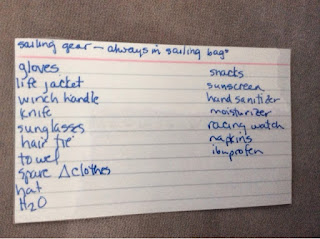 sailing gear — always in sailing bag*
gloves
life jacket
winch handle
knife
sunglasses
hair tie
towel
spare Δ clothes
hat
H₂O
snacks
sunscreen
hand sanitizer
moisturizer
racing watch
napkins
ibuprofen